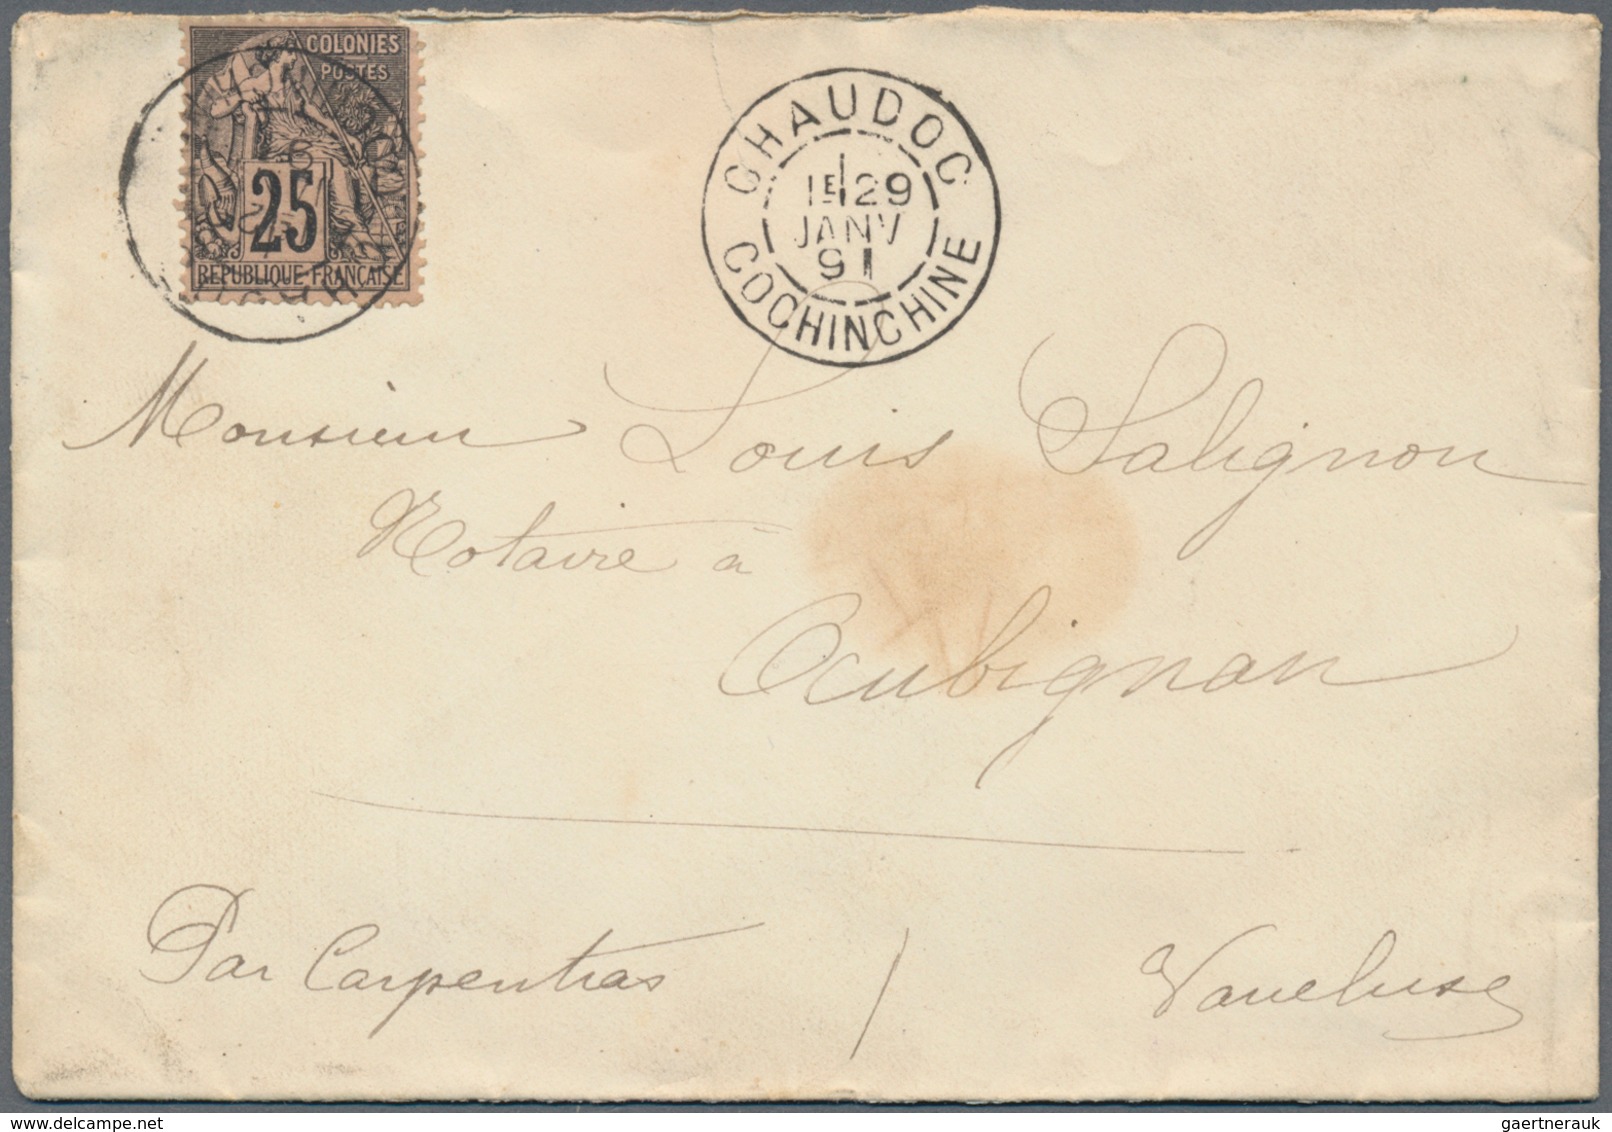 COLONIES
POSTES
25
REPUBLIQUE FRANÇAISE
CHAUDOC
1E 29
JANV
91
COCHINCHINE
Monsieur Louis Salignon
Notaire à
Aubignan
Par Carpentras / Vaucluse
gaertnerauk / delcampe.net